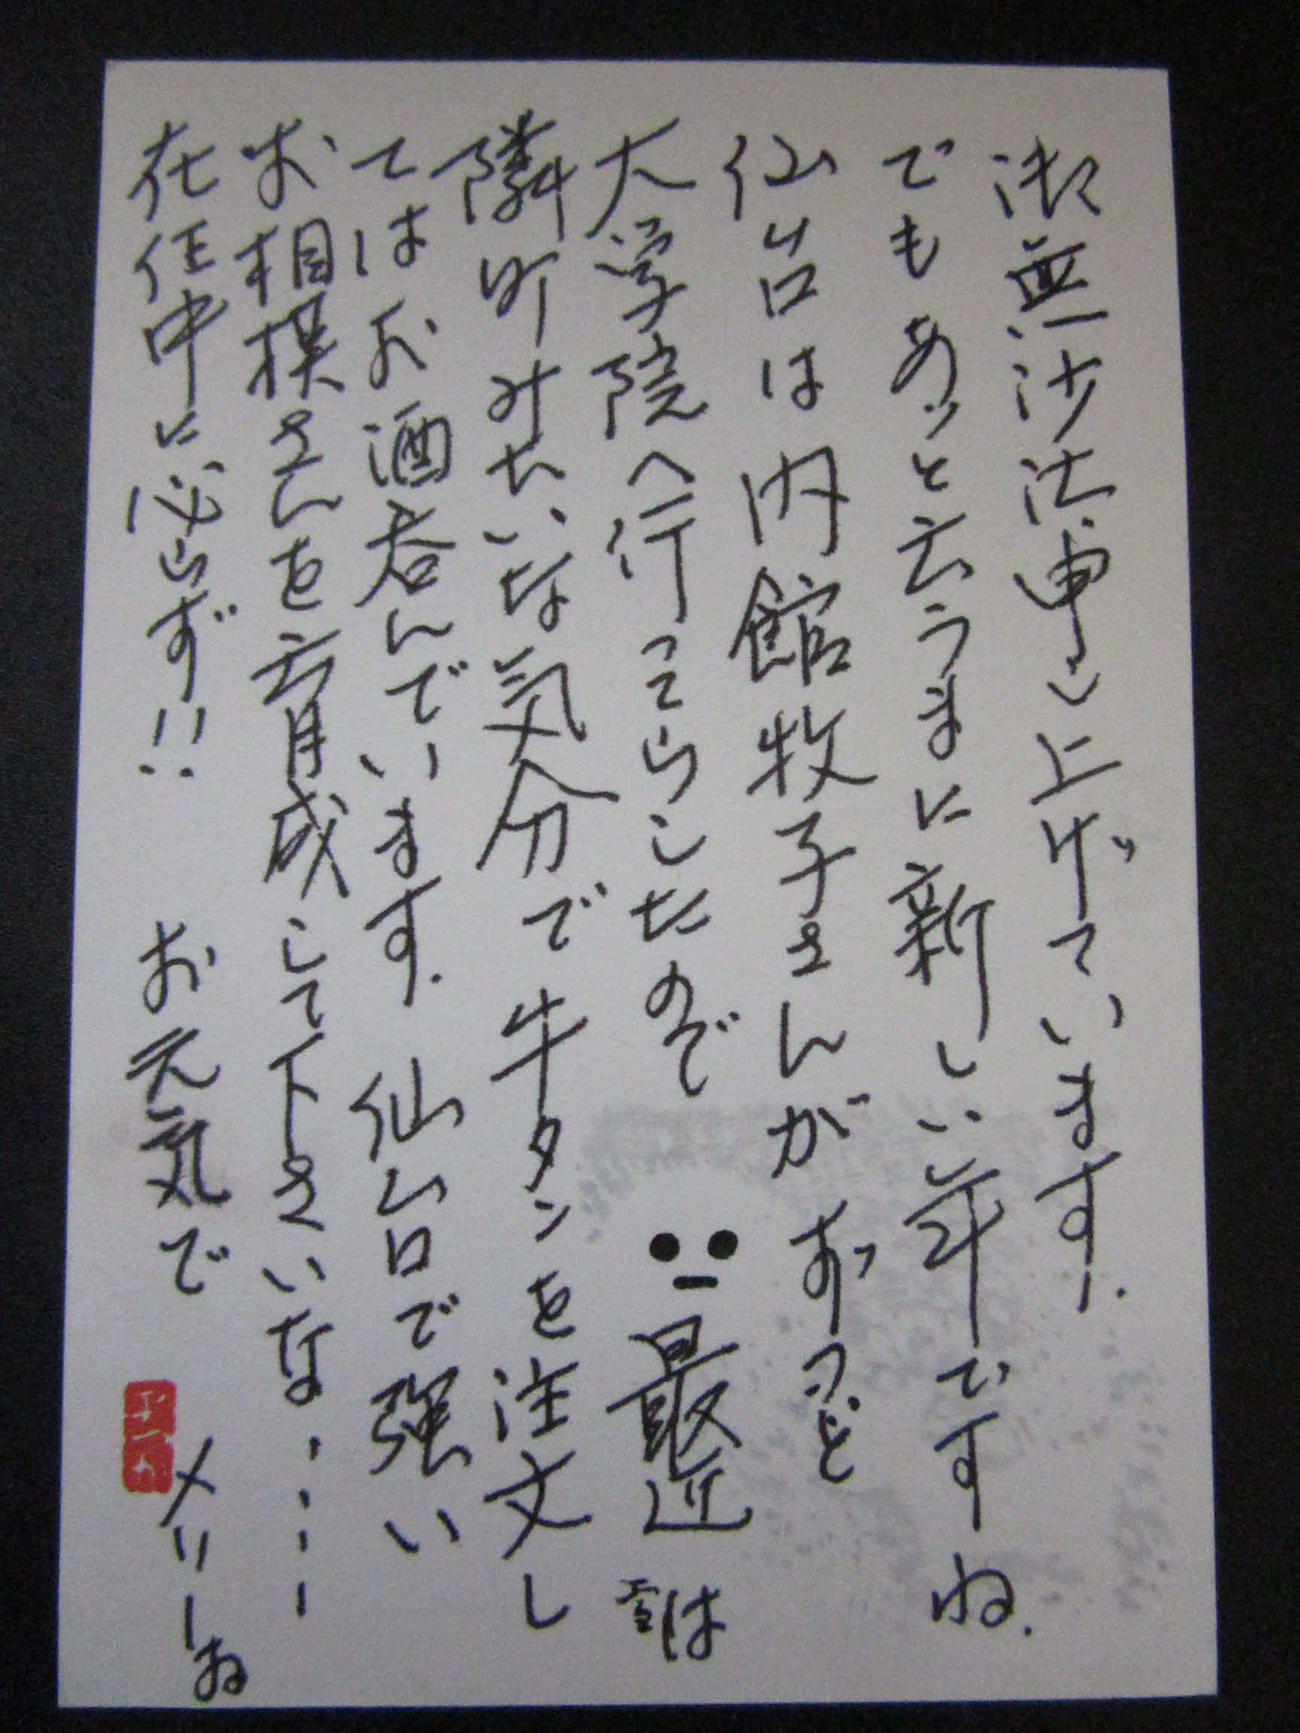 御無沙法申し上げています.
でもあッと云うまに新しい年ですね.
仙台は内館牧子さんがずっと
大学院へ行ってらしたので 最近は
隣町みたいな気分で牛タンを注文し
てはお酒呑んでいます. 仙台で強い
お相撲さんを育成して下さいな・・・・
在住中に必らず!! お元気で